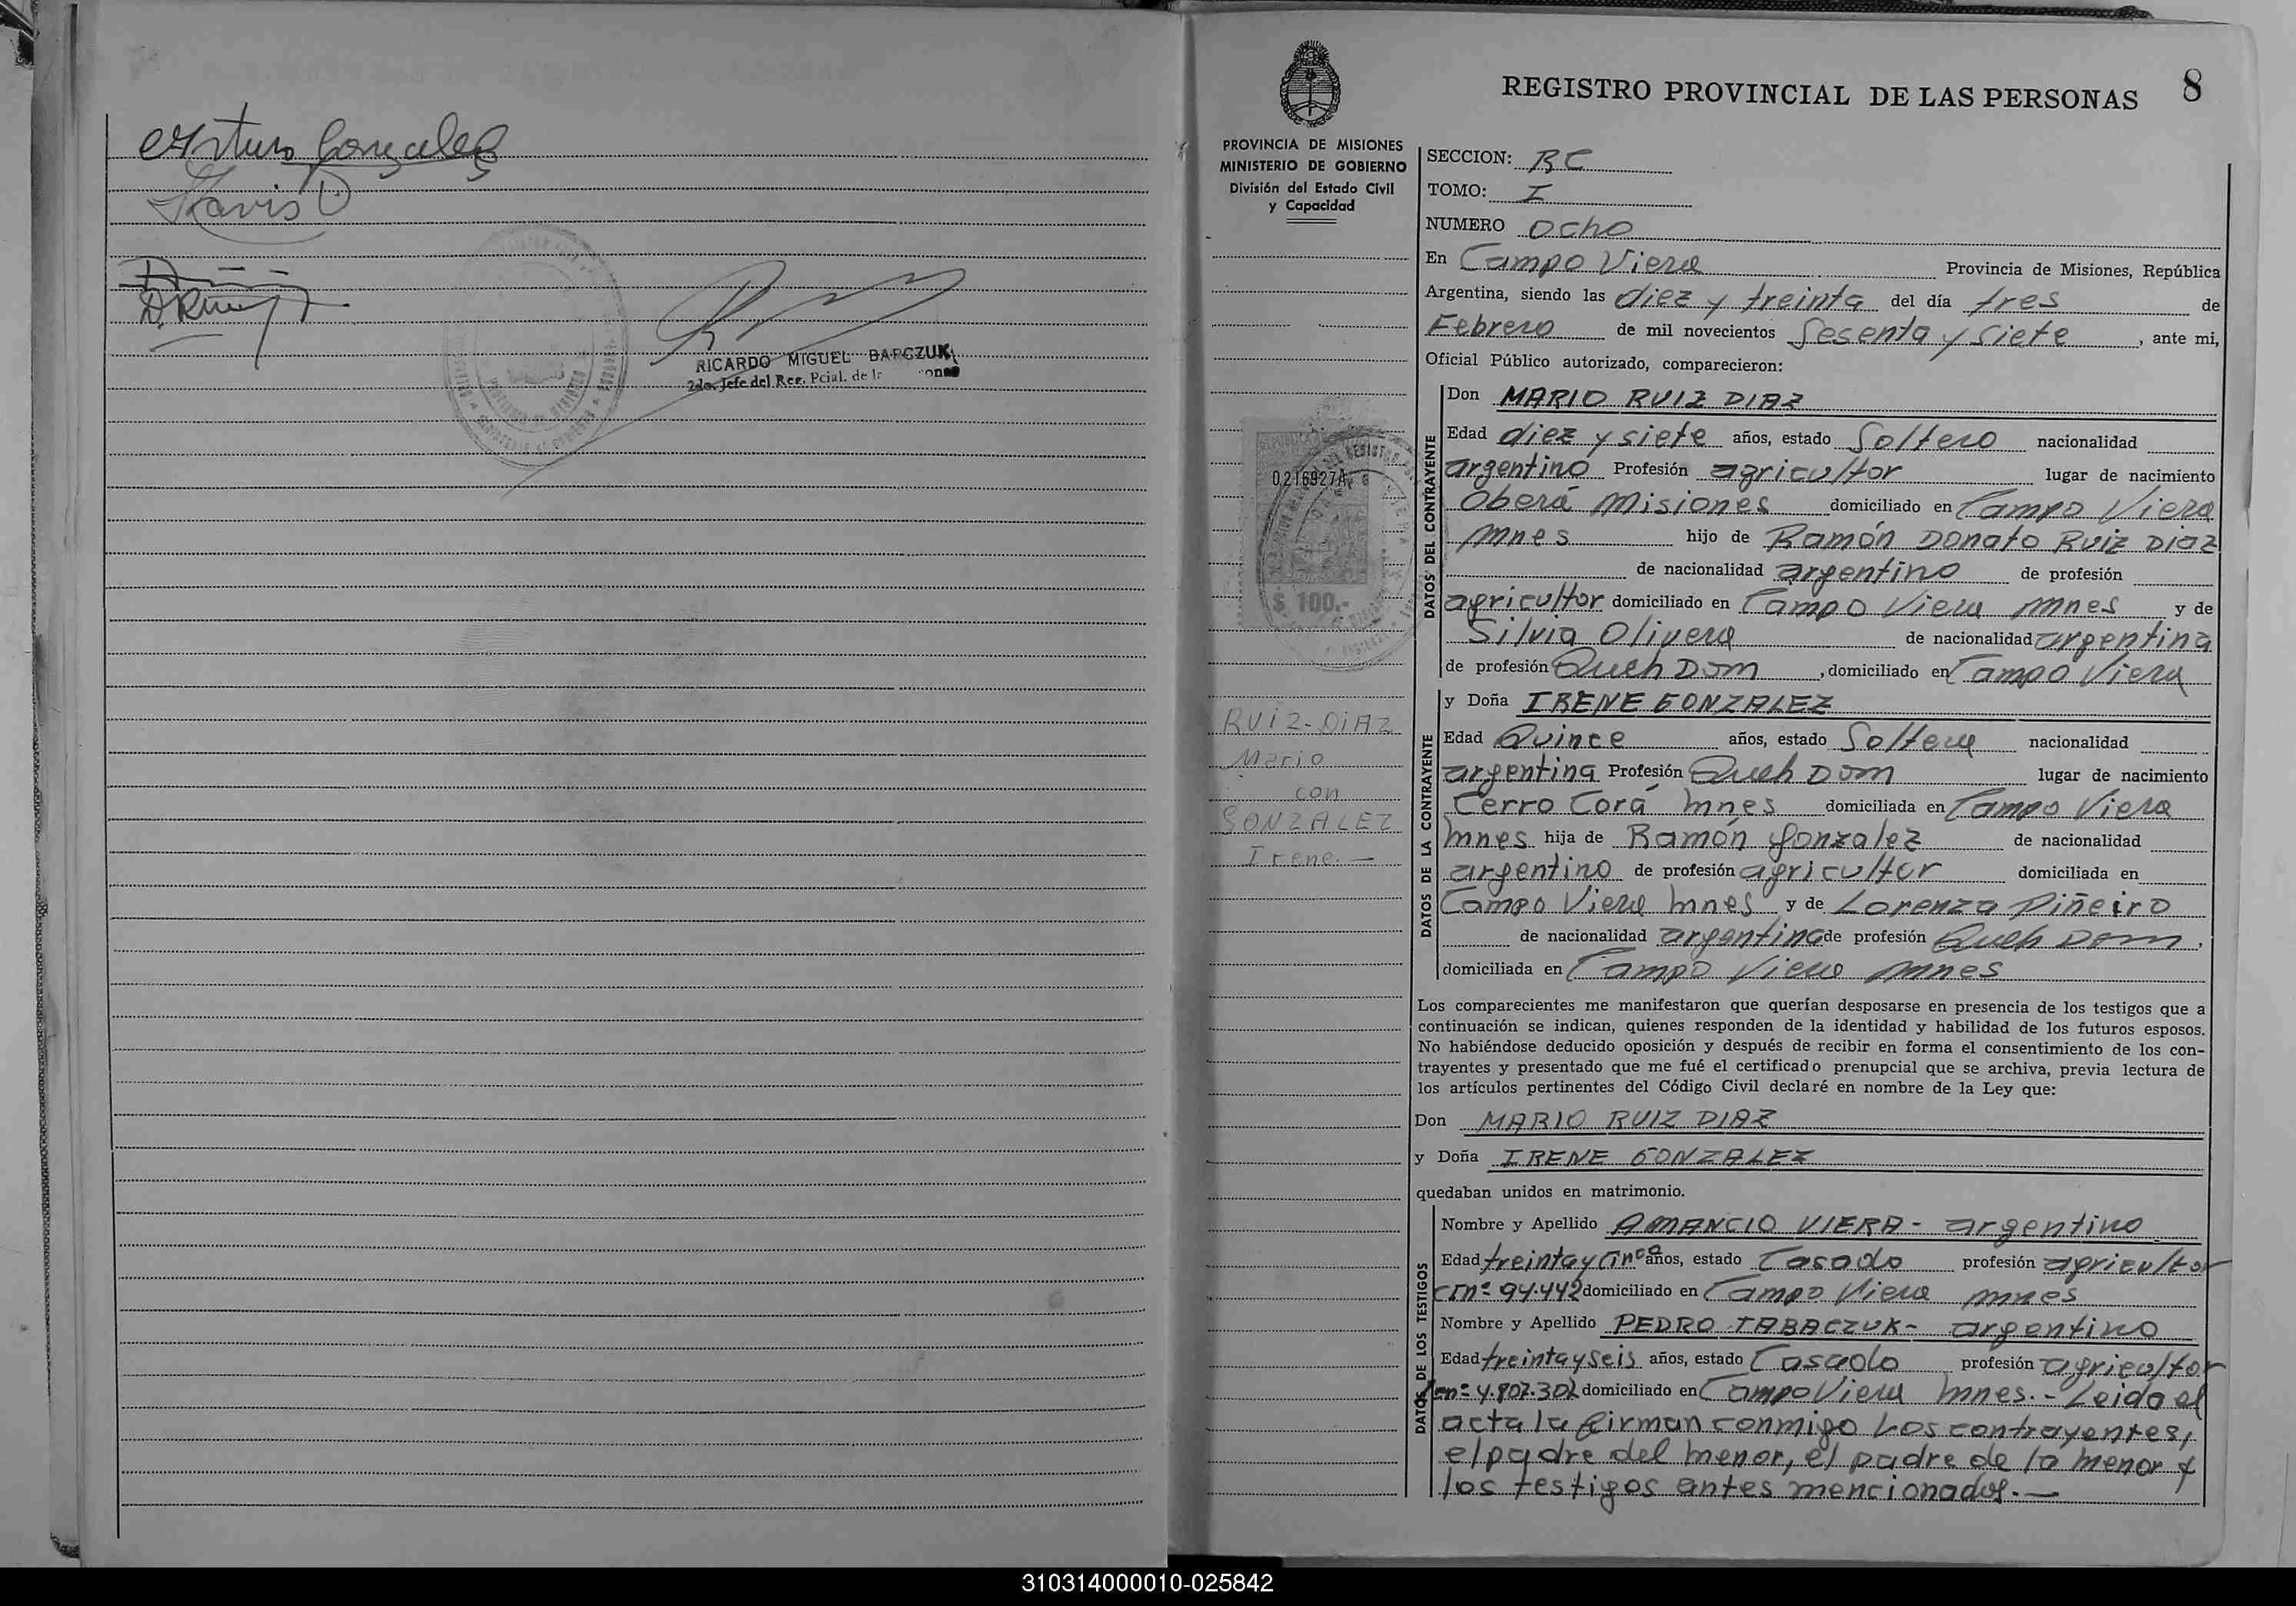 Arturo Gonzalez
RICARDO MIGUEL BARCZUK
2do. Jefe del Reg. Pcial. de
8
REGISTRO PROVINCIAL DE LAS PERSONAS
PROVINCIA DE MISIONES
MINISTERIO DE GOBIERNO
División del Estado Civil
y Capacidad
0216927A
$ 100.-
RUIZ-DIAZ
Mario
con
GONZALEZ
Irene.—
SECCION: RC
TOMO: I
NUMERO ocho
En Campo Viera Provincia de Misiones, República
Argentina, siendo las diez y treinta del día tres de
Febrero de mil novecientos Sesenta y siete, ante mi,
Oficial Público autorizado, comparecieron:
DATOS DEL CONTRAYENTE
Don MARIO RUIZ DIAZ
Edad diez y siete años, estado Soltero nacionalidad
argentino Profesión agricultor lugar de nacimiento
Oberá Misiones domiciliado en Campo Viera
Mnes hijo de Ramón Donato Ruiz Diaz
de nacionalidad argentino de profesión
agricultor domiciliado en Campo Viera Mnes y de
Silvia Olivera de nacionalidad argentina
de profesión Queh Dom, domiciliado en Campo Viera
DATOS DE LA CONTRAYENTE
y Doña IRENE GONZALEZ
Edad Quince años, estado Soltera nacionalidad
argentina Profesión Queh Dom lugar de nacimiento
Cerro Corá Mnes domiciliada en Campo Viera
Mnes hija de Ramón Gonzalez de nacionalidad
argentino de profesión agricultor domiciliada en
Campo Viera Mnes y de Lorenza Piñeiro
de nacionalidad argentina de profesión Queh Dom,
domiciliada en Campo Viera Mnes
Los comparecientes me manifestaron que querían desposarse en presencia de los testigos que a
continuación se indican, quienes responden de la identidad y habilidad de los futuros esposos.
No habiéndose deducido oposición y después de recibir en forma el consentimiento de los con-
trayentes y presentado que me fué el certificado prenupcial que se archiva, previa lectura de
los artículos pertinentes del Código Civil declaré en nombre de la Ley que:
Don MARIO RUIZ DIAZ
y Doña IRENE GONZALEZ
quedaban unidos en matrimonio.
DATOS DE LOS TESTIGOS
Nombre y Apellido AMANCIO VIERA - argentino
Edad treinta y cinco años, estado Casado profesión agricultor
cmnº 94.442 domiciliado en Campo Viera Mnes
Nombre y Apellido PEDRO TABACZUK - argentino
Edad treinta y seis años, estado Casado profesión agricultor
domiciliado en Campo Viera Mnes.- Leida el
acta la firman conmigo los contrayentes,
el padre del menor, el padre de la menor y
los testigos antes mencionados.—
310314000010-025842